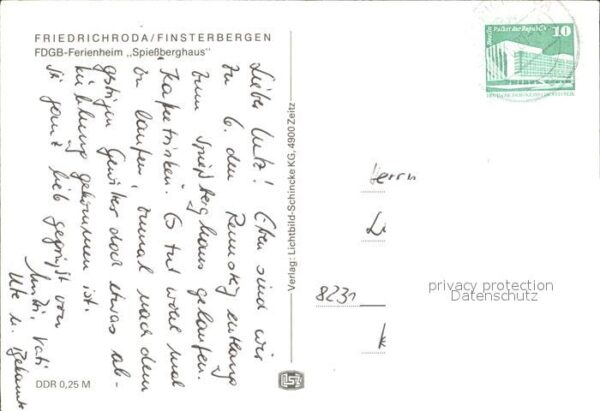 FRIEDRICHRODA/FINSTERBERGEN
FDGB-Ferienheim „Spießberghaus"
Lieber Lutz! Eben sind wir
zu 6. den Rennsteig entlang
zum Spießberghaus gelaufen.
"Kaffeetrinken". Es tut wohl mal
zu laufen, zumal nach dem
gestrigen Gewitter doch etwas ab-
kühlung gekommen ist.
Sei ganz lieb gegrüßt von
Mutti, Vati
Ute u.
DDR 0,25 M
Verlag: Lichtbild-Schincke KG, 4900 Zeitz
Berlin Palast der Republik
10
DEUTSCHE DEMOKRATISCHE REPUBLIK
Herrn
L
8231
K
privacy protection
Datenschutz